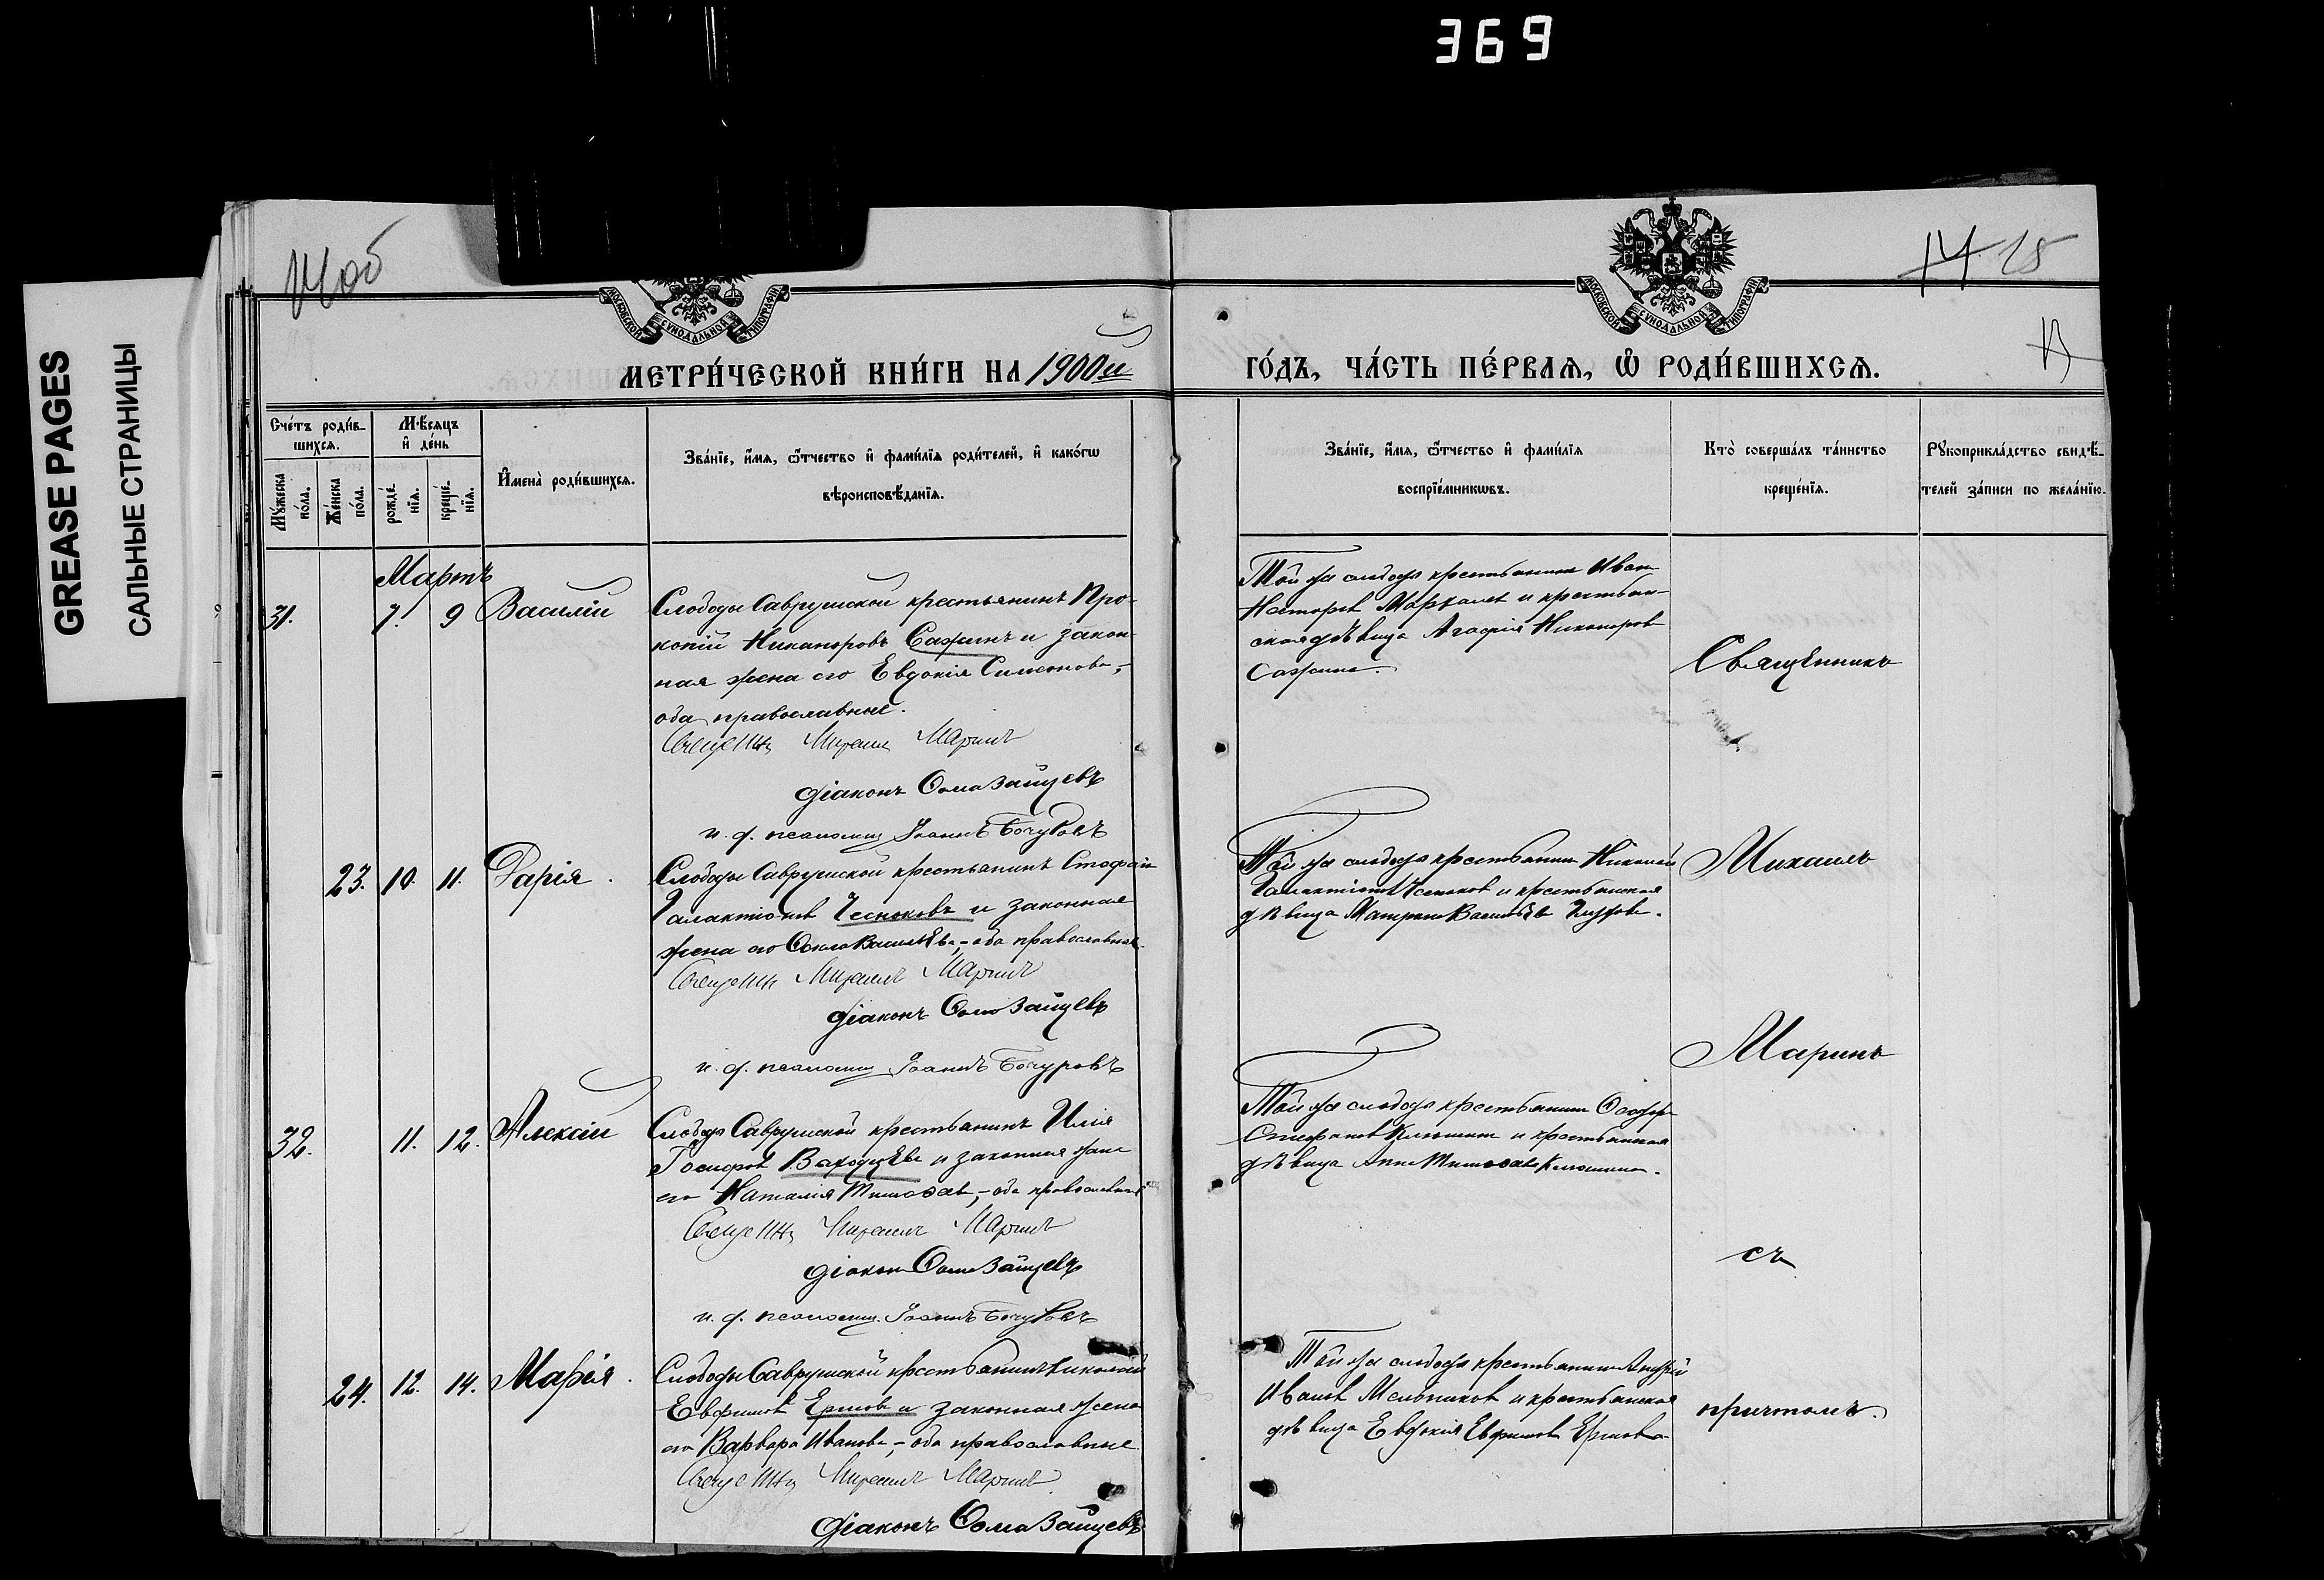 369
GREASE PAGES
САЛЬНЫЕ СТРАНИЦЫ
14об
14 15
МОСКОВСКОЙ СѴНОДАЛЬНОЙ ТИПОГРАФІИ
МОСКОВСКОЙ СѴНОДАЛЬНОЙ ТИПОГРАФІИ
МЕТРИ́ЧЕСКОЙ КНИ́ГИ НА 1900й
ГО́ДЪ, ЧА́СТЬ ПЕ́РВАѦ, Ѡ҆ РОДИ́ВШИХСѦ.
Сче́тъ роди́в-
шихсѧ.
Мꙋ́жеска
по́ла.
Же́нска
по́ла.
Мѣ́сѧцъ
и҆ де́нь
рожде́-
нїѧ.
креще́-
нїѧ.
И҆мена̀ роди́вшихсѧ.
Зва́нїе, и҆́мѧ, ѻ҆́тчество и҆ фами́лїѧ роди́телей, и҆ како́гѡ
вѣроисповѣ́данїѧ.
Зва́нїе, и҆́мѧ, ѻ҆́тчество и҆ фами́лїѧ
воспрїе́мникѡвъ.
Кто̀ соверша́лъ та́инство
креще́нїѧ.
Рꙋкоприкла́дство свидѣ́-
телей за́писи по жела́нїю.
Мартъ
31. 7. 9 Василій
Слободы Саврушской крестьянинъ Про-
копій Никаноровъ Сажинъ и закон-
ная жена его Евдокія Симеонова,-
оба православные.
Михаилъ Маринъ
діаконъ Ѳома Зайцевъ
и. д. псаломщ Іоаннъ Бочуровъ
Той же слободы крестьянинъ Иван
Несторовъ и крестьян-
ская дѣвица Агафія Никаноров
Сажина.
Священникъ
23. 10. 11. Дарія.
Слободы Саврушской крестьянинъ Стефан
Галактіонов Чесноковъ и законная
жена его Ѳекла Васильева,- оба православные.
Михаилъ Маринъ
діаконъ Ѳома Зайцевъ
и. д. псаломщ Іоаннъ Бочуровъ
Той же слободы крестьянин Николай
Галактіонов Чесноков и крестьянская
дѣвица Матрона Васильева
Михаилъ
Маринъ
32. 11. 12. Алексій
Слободы Саврушской крестьянинъ Илія
Іосифов и законная жена
его Наталія Тимофеев,- оба православные
Михаилъ Маринъ
діакон Ѳома Зайцевъ
и. д. псаломщ. Іоаннъ Бочуровъ
Той же слободы крестьянин Ѳеодор
Стефанов Клюшин и крестьянская
дѣвица Анна Тимофеева Клюшина.
съ
24. 12. 14. Марія.
Слободы Саврушской крестьянинъ Николай
Евфимов Ершов и законная жена
его Варвара Иванова,- оба православные
Михаилъ Маринъ
діаконъ Ѳома Зайцевъ
Той же слободы крестьянин Андрей
Иванов Мельников и крестьянская
дѣвица Евдокія Евфимова Ершова
причтомъ.